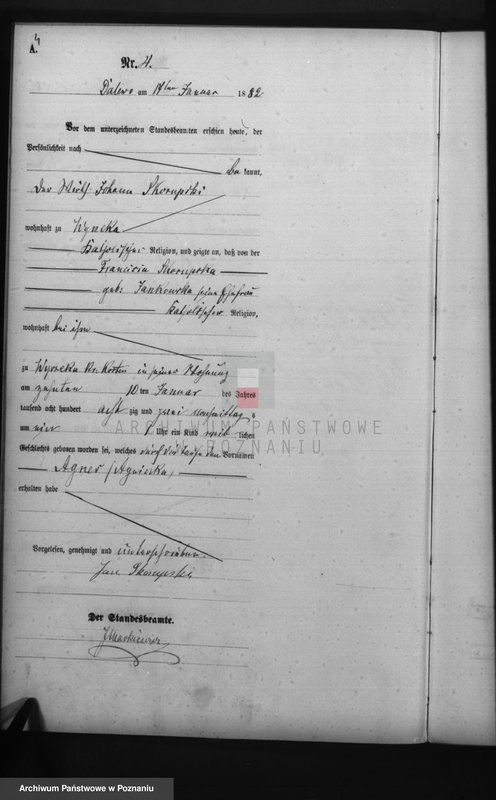 A.
4
Nr. 4.
Dalewo am 14ten Januar 1882
Vor dem unterzeichneten Standesbeamten erschien heute, der
Persönlichkeit nach
bekannt,
der Wirth Johann Skorupski
wohnhaft zu Wyrzeka
katholischer Religion, und zeigte an, daß von der
Skorupska
geb. Jankowska seine Ehefrau
katholischer Religion,
wohnhaft bei ihm
zu Wyrzeka Kr. Kosten in seiner Wohnung
am zehnten 10 ten Januar des Jahres
tausend acht hundert acht zig und zwei nachmittags
um vier Uhr ein Kind weib lichen
Geschlechts geboren worden sei, welches durch die Taufe den Vornamen
Agnes (Agnieska)
erhalten habe
Vorgelesen, genehmigt und unterschrieben
Jan Skorupski
Der Standesbeamte.
ARCHIWUM PAŃSTWOWE
POZNANIU
Archiwum Państwowe w Poznaniu